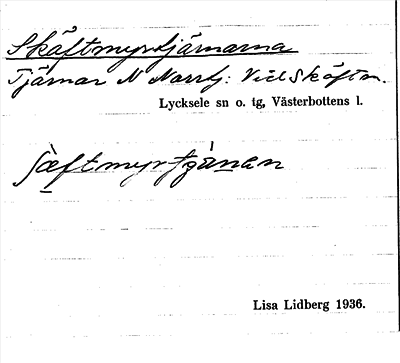 Skäftmyrtjärnarna
Tjärnar N Norrtj: Vid Skäftm.
Lycksele sn o. tg, Västerbottens l.
ʃæftmyrtjànan
Lisa Lidberg 1936.